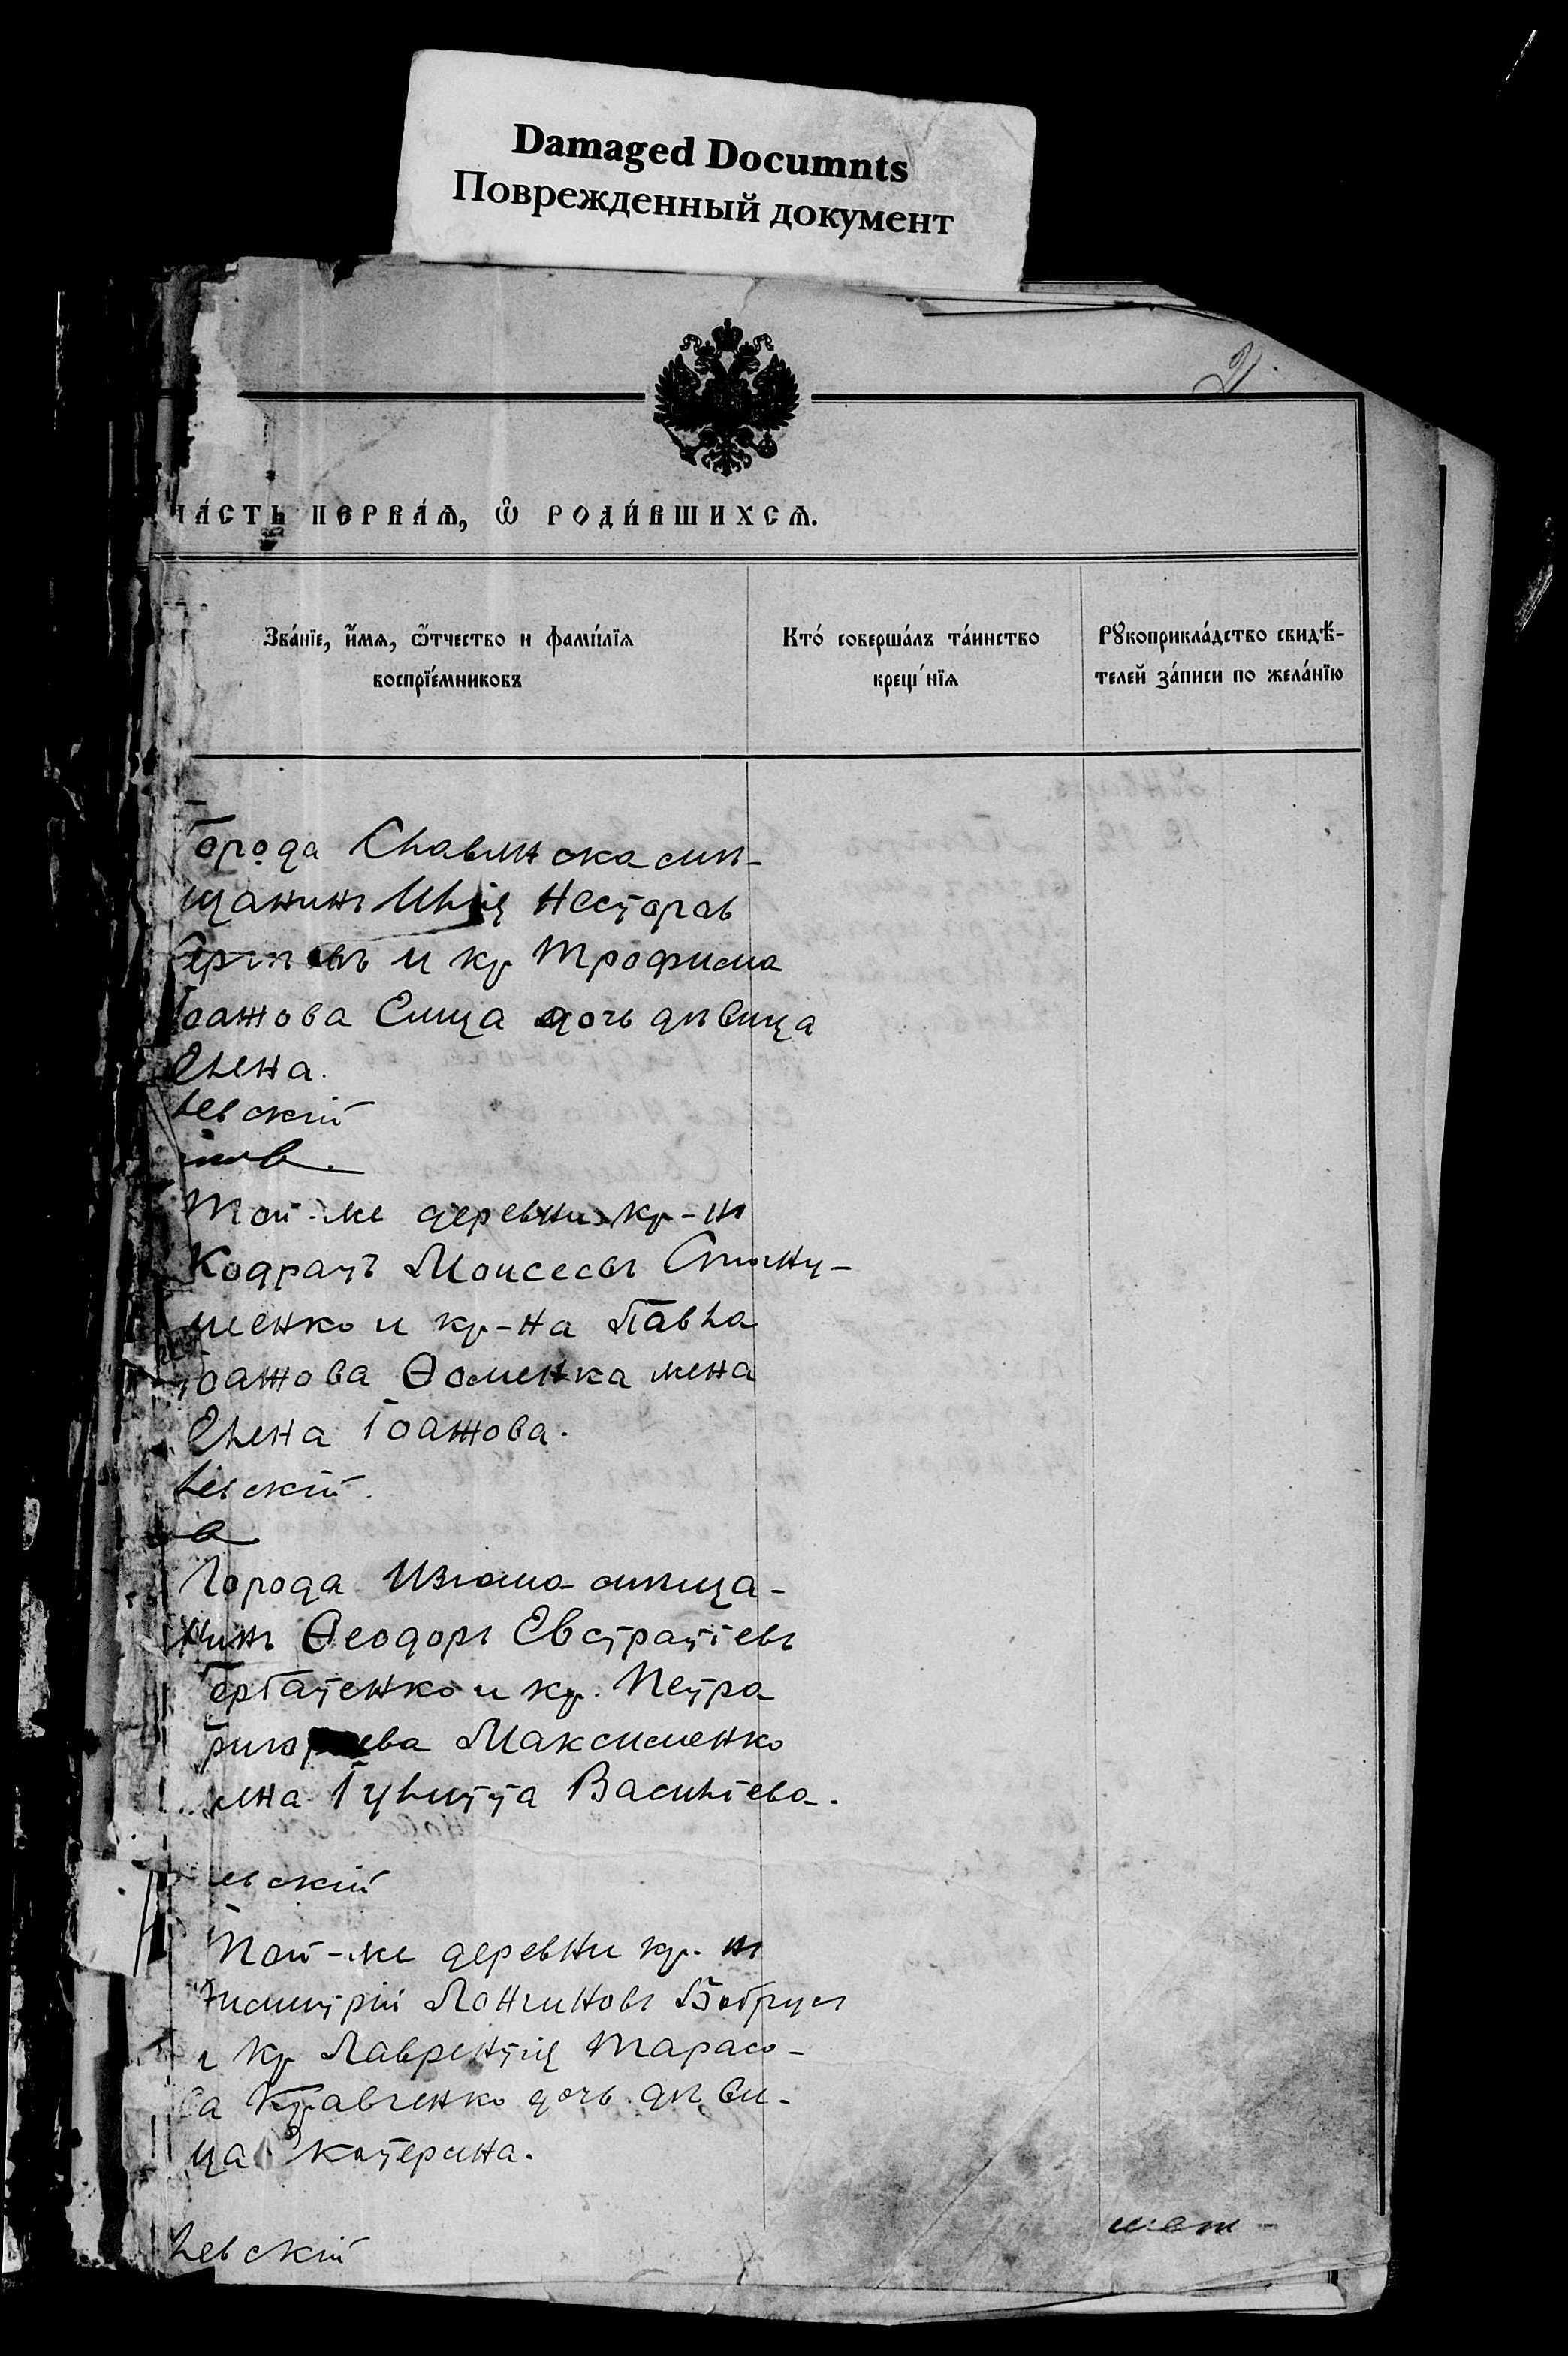 Damaged Documnts
Поврежденный документ
2
ЧА́СТЬ ПЕРВА́Ѧ, Ѿ РОДИ́ВШИХСѦ.
Зва́нїе, и҆́мѧ, ѻ҆́тчество и фами́лїѧ
воспрїе́мниковъ
Кто́ соверша́лъ та́инство
креще́нїѧ
Рꙋкоприкла́дство свидѣ́-
телей за́писи по жела́нїю
Города Славянска мѣ-
щанинъ Илія Несторов
и кр Трофима
Іоанова дочь дѣвица
Елена.
левскій
Той-же деревни кр-нъ
Кодратъ Моисеевъ
менко и кр-на Павла
Іоанова Ѳоменка жена
Елена Іоанова.
левскій.
в
Города Изюма мѣща-
нинъ Ѳеодоръ Евстратіевъ
Горбатенко и кр. Петра
Григорева Максименко
жена Гулитта Василіева.
левскій
Той-же деревни кр. нъ
Димитрій Лонгиновъ
и кр Лаврентія Тарасо-
ва Кравченко дочь дѣви-
ца Екатерина.
левскій